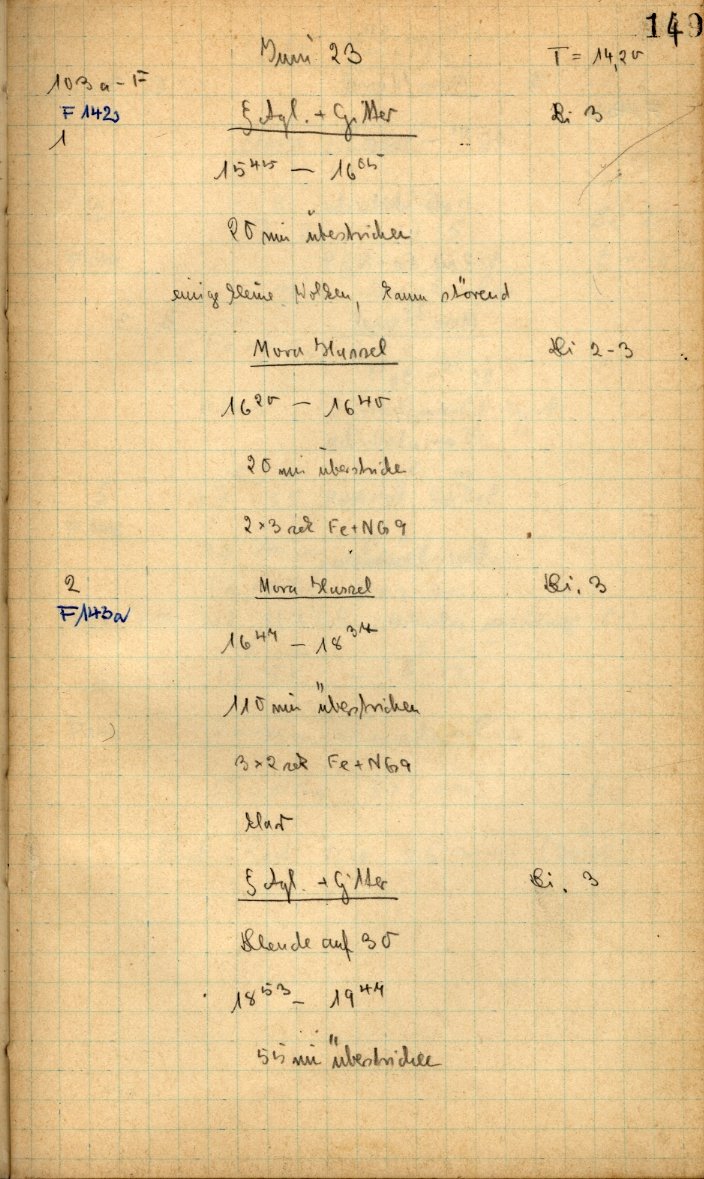 149
Juni 23 T = 14,20
103a-F
F 142a ξ Aql. + Gitter Bi 3
1
15⁴⁵ — 16⁰⁵
20 min überstrichen
einige kleine Wolken, kaum störend
Mova Hassel Bi 2-3
16²⁰ — 16⁴⁰
20 min überstrichen
2×3 sek Fe+NG9
2 Mova Hassel Bi. 3
F143a
16⁴⁴ — 18³⁴
110 min überstrichen
3×2 sek Fe+NG9
klar
ξ Aql. + Gitter Bi. 3
Blende auf 30
18⁵³ — 19⁴⁴
55 min überstrichen